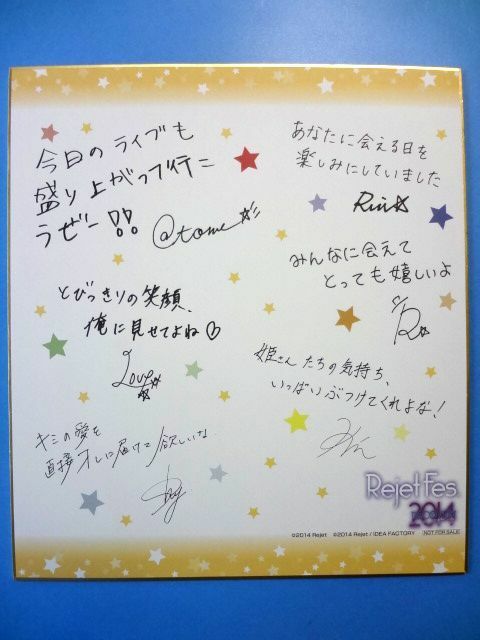 今日のライブも
盛り上がって行こ
うぜー!!
@tome
あなたに会える日を
楽しみにしていました
Rin
みんなに会えて
とっても嬉しいよ
"R
とびっきりの笑顔、
俺に見せてよね♡
Love
姫さんたちの気持ち、
いっぱいぶつけてくれよな!
キミの愛を
直接オレに届けて欲しいな
Rejet Fes
2014
©2014 Rejet ©2014 Rejet / IDEA FACTORY NOT FOR SALE